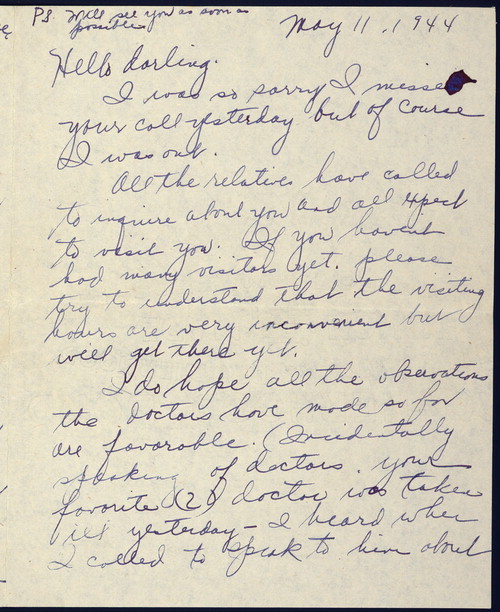 PS. Will see you as soon as
possible
May 11, 1944
Hello darling.
I was so sorry I missed
your call yesterday but of course
I was out.
All the relatives have called
to inquire about you and all expect
to visit you. If you havent
had many visitors yet, please
try to understand that the visiting
hours are very inconvenient but
will get there yet.
I do hope all the observations
the doctors have made so far
are favorable. (Incidentally
speaking of doctors, your
favorite (2?) doctor was taken
ill yesterday - I heard when
I called to speak to him about